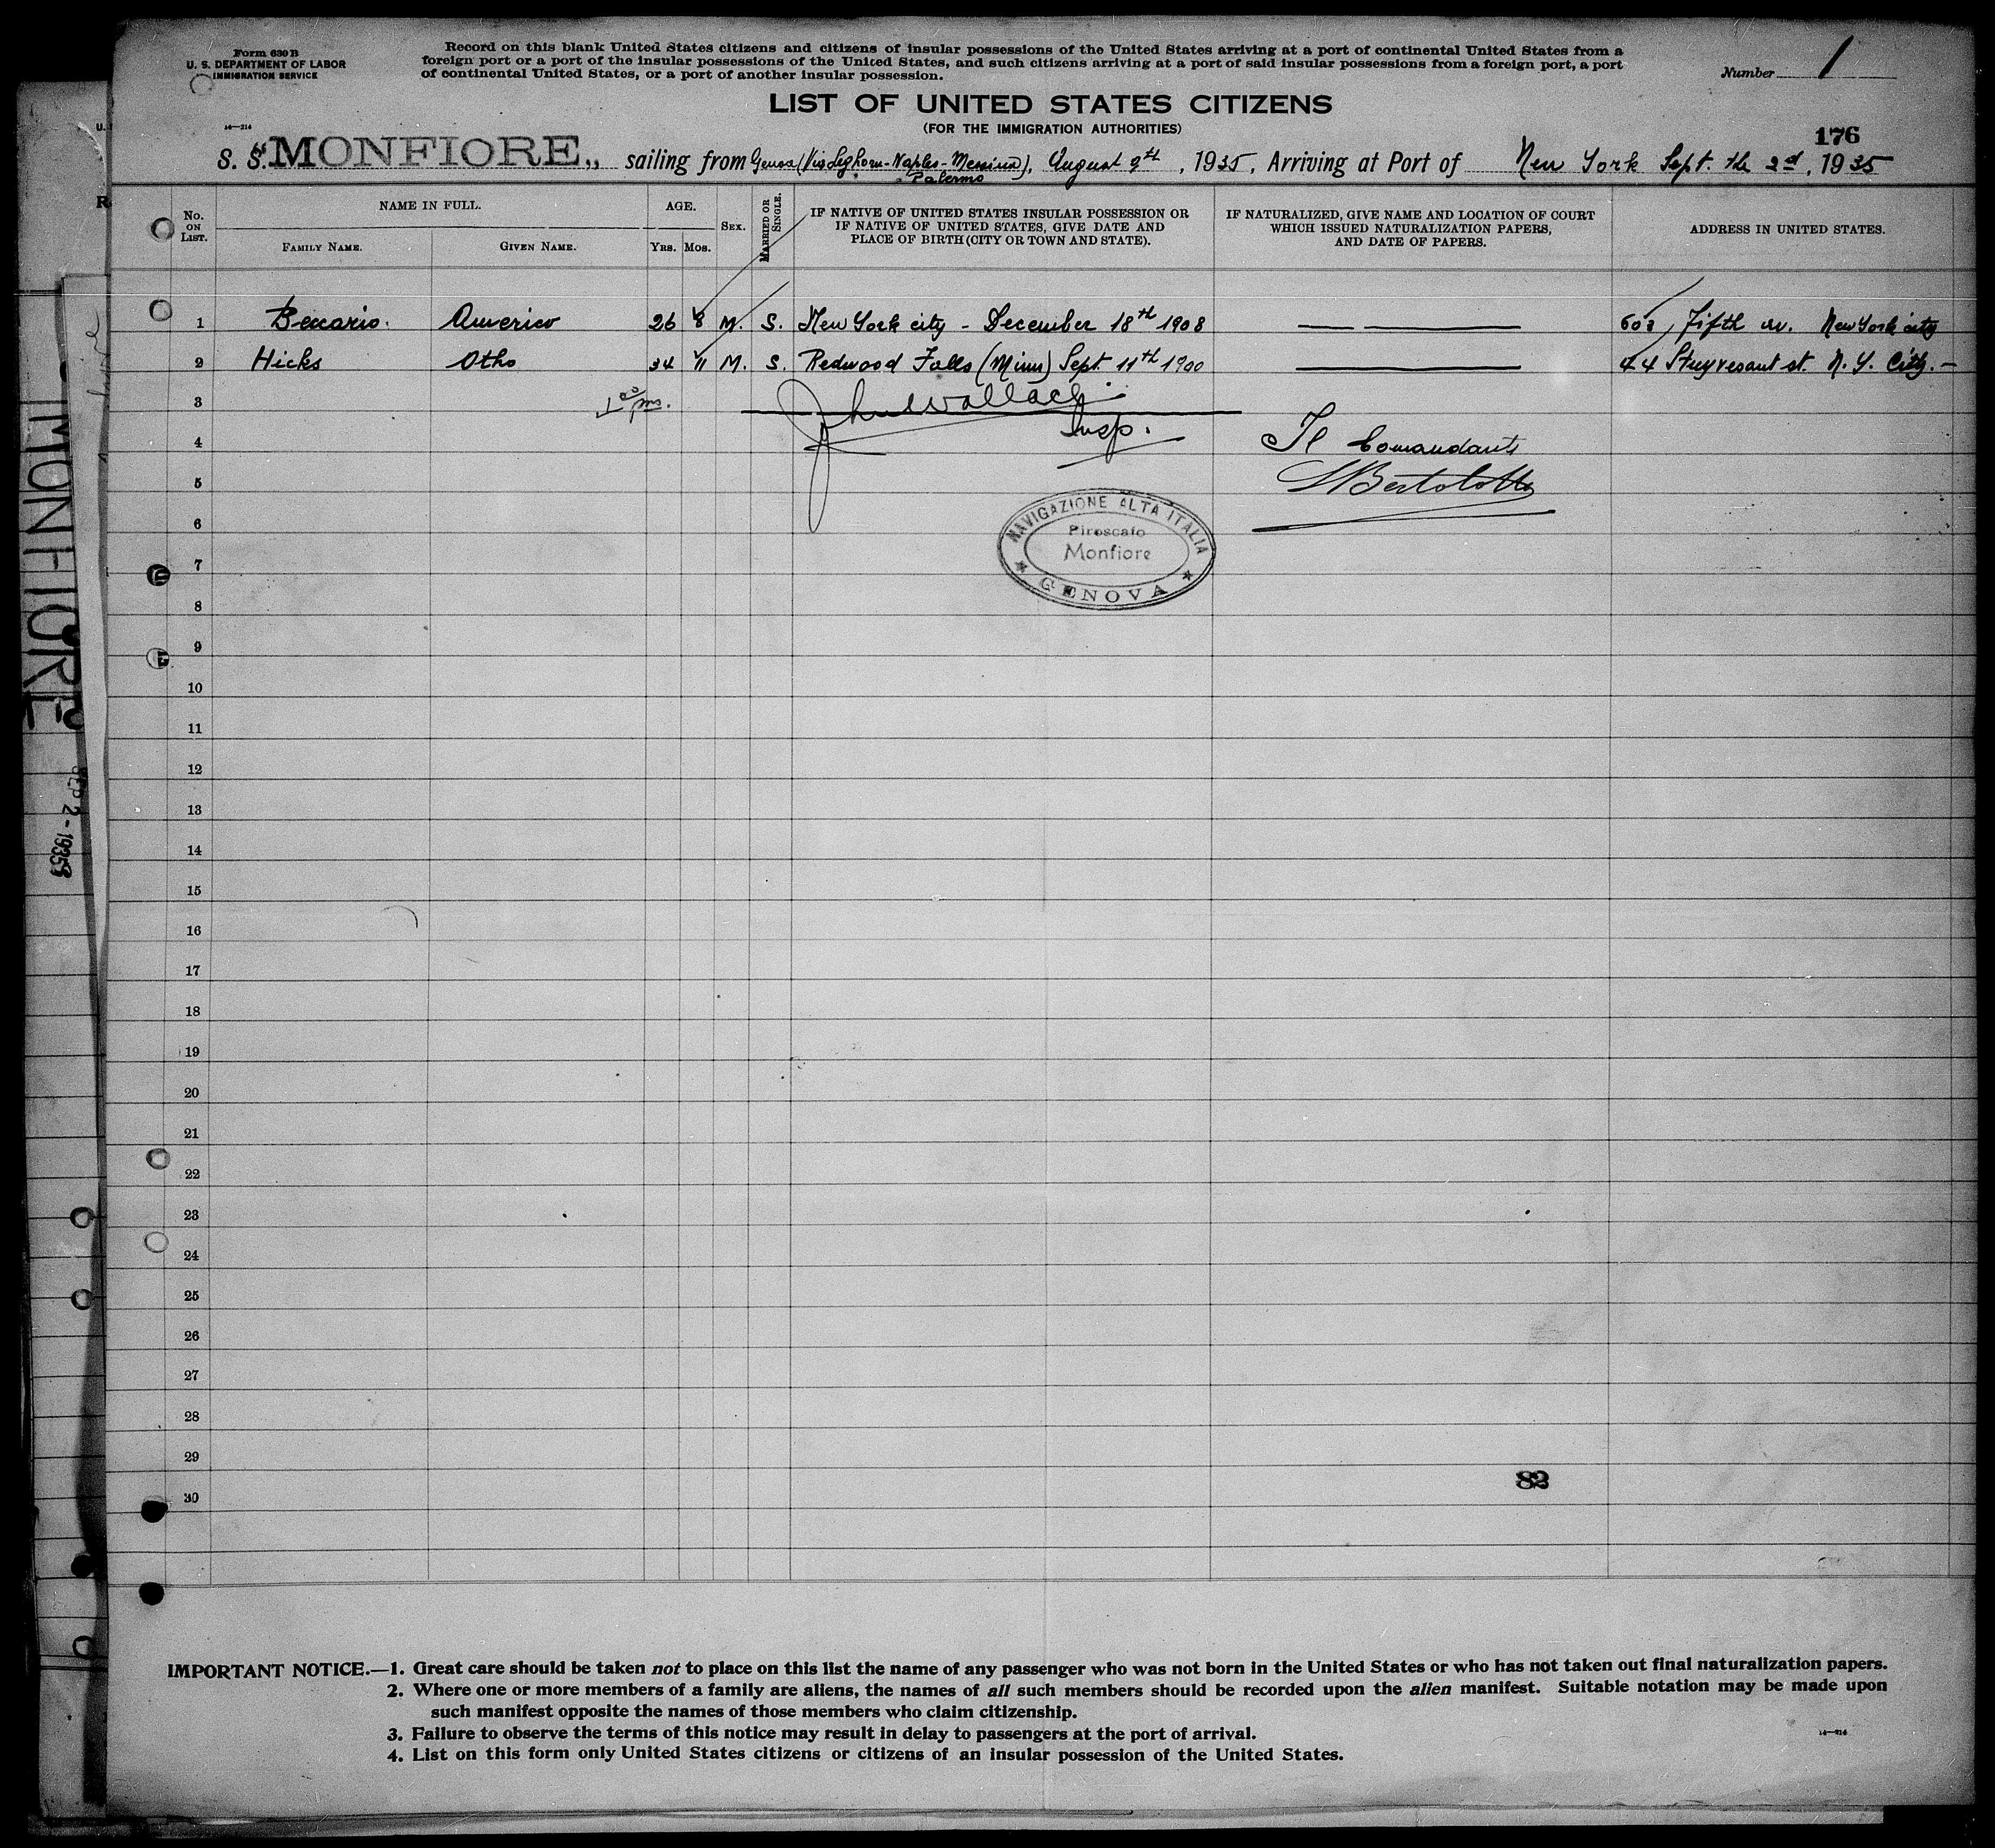 Form 630 B
U. S. DEPARTMENT OF LABOR
IMMIGRATION SERVICE
14—214
Record on this blank United States citizens and citizens of insular possessions of the United States arriving at a port of continental United States from a
foreign port or a port of the insular possessions of the United States, and such citizens arriving at a port of said insular possessions from a foreign port, a port
of continental United States, or a port of another insular possession.
Number 1
LIST OF UNITED STATES CITIZENS
(FOR THE IMMIGRATION AUTHORITIES)
176
S. S. "MONFIORE,, sailing from Genoa (Via Leghorn-Naples-Messina), August 9th, 1935, Arriving at Port of New York Sept. the 2d, 1935
- Palermo
No. ON LIST.
NAME IN FULL.
FAMILY NAME. GIVEN NAME.
AGE.
YRS. MOS.
SEX.
MARRIED OR SINGLE.
IF NATIVE OF UNITED STATES INSULAR POSSESSION OR
IF NATIVE OF UNITED STATES, GIVE DATE AND
PLACE OF BIRTH (CITY OR TOWN AND STATE).
IF NATURALIZED, GIVE NAME AND LOCATION OF COURT
WHICH ISSUED NATURALIZATION PAPERS,
AND DATE OF PAPERS.
ADDRESS IN UNITED STATES.
1 Beccario. Americo 26 8 M. S. New York city - December 18th 1908 — — 603, Fifth av. New York city
2 Hicks Otho 34 11 M. S. Redwood Falls (Minn) Sept. 11th 1900 — 44 Stuyvesant st. N. Y. City. —
3 Wallach
Insp.
4 Il Comandante
5 Bertolotto
6
NAVIGAZIONE ALTA ITALIA
Piroscafo
Monfiore
★ GENOVA ★
7
8
9
10
11
12
13
14
15
16
17
18
19
20
21
22
23
24
25
26
27
28
29
82
30
IMPORTANT NOTICE.—1. Great care should be taken not to place on this list the name of any passenger who was not born in the United States or who has not taken out final naturalization papers.
2. Where one or more members of a family are aliens, the names of all such members should be recorded upon the alien manifest. Suitable notation may be made upon
such manifest opposite the names of those members who claim citizenship.
3. Failure to observe the terms of this notice may result in delay to passengers at the port of arrival.
14—214
4. List on this form only United States citizens or citizens of an insular possession of the United States.
MONFIORE
SEP 2 - 1935